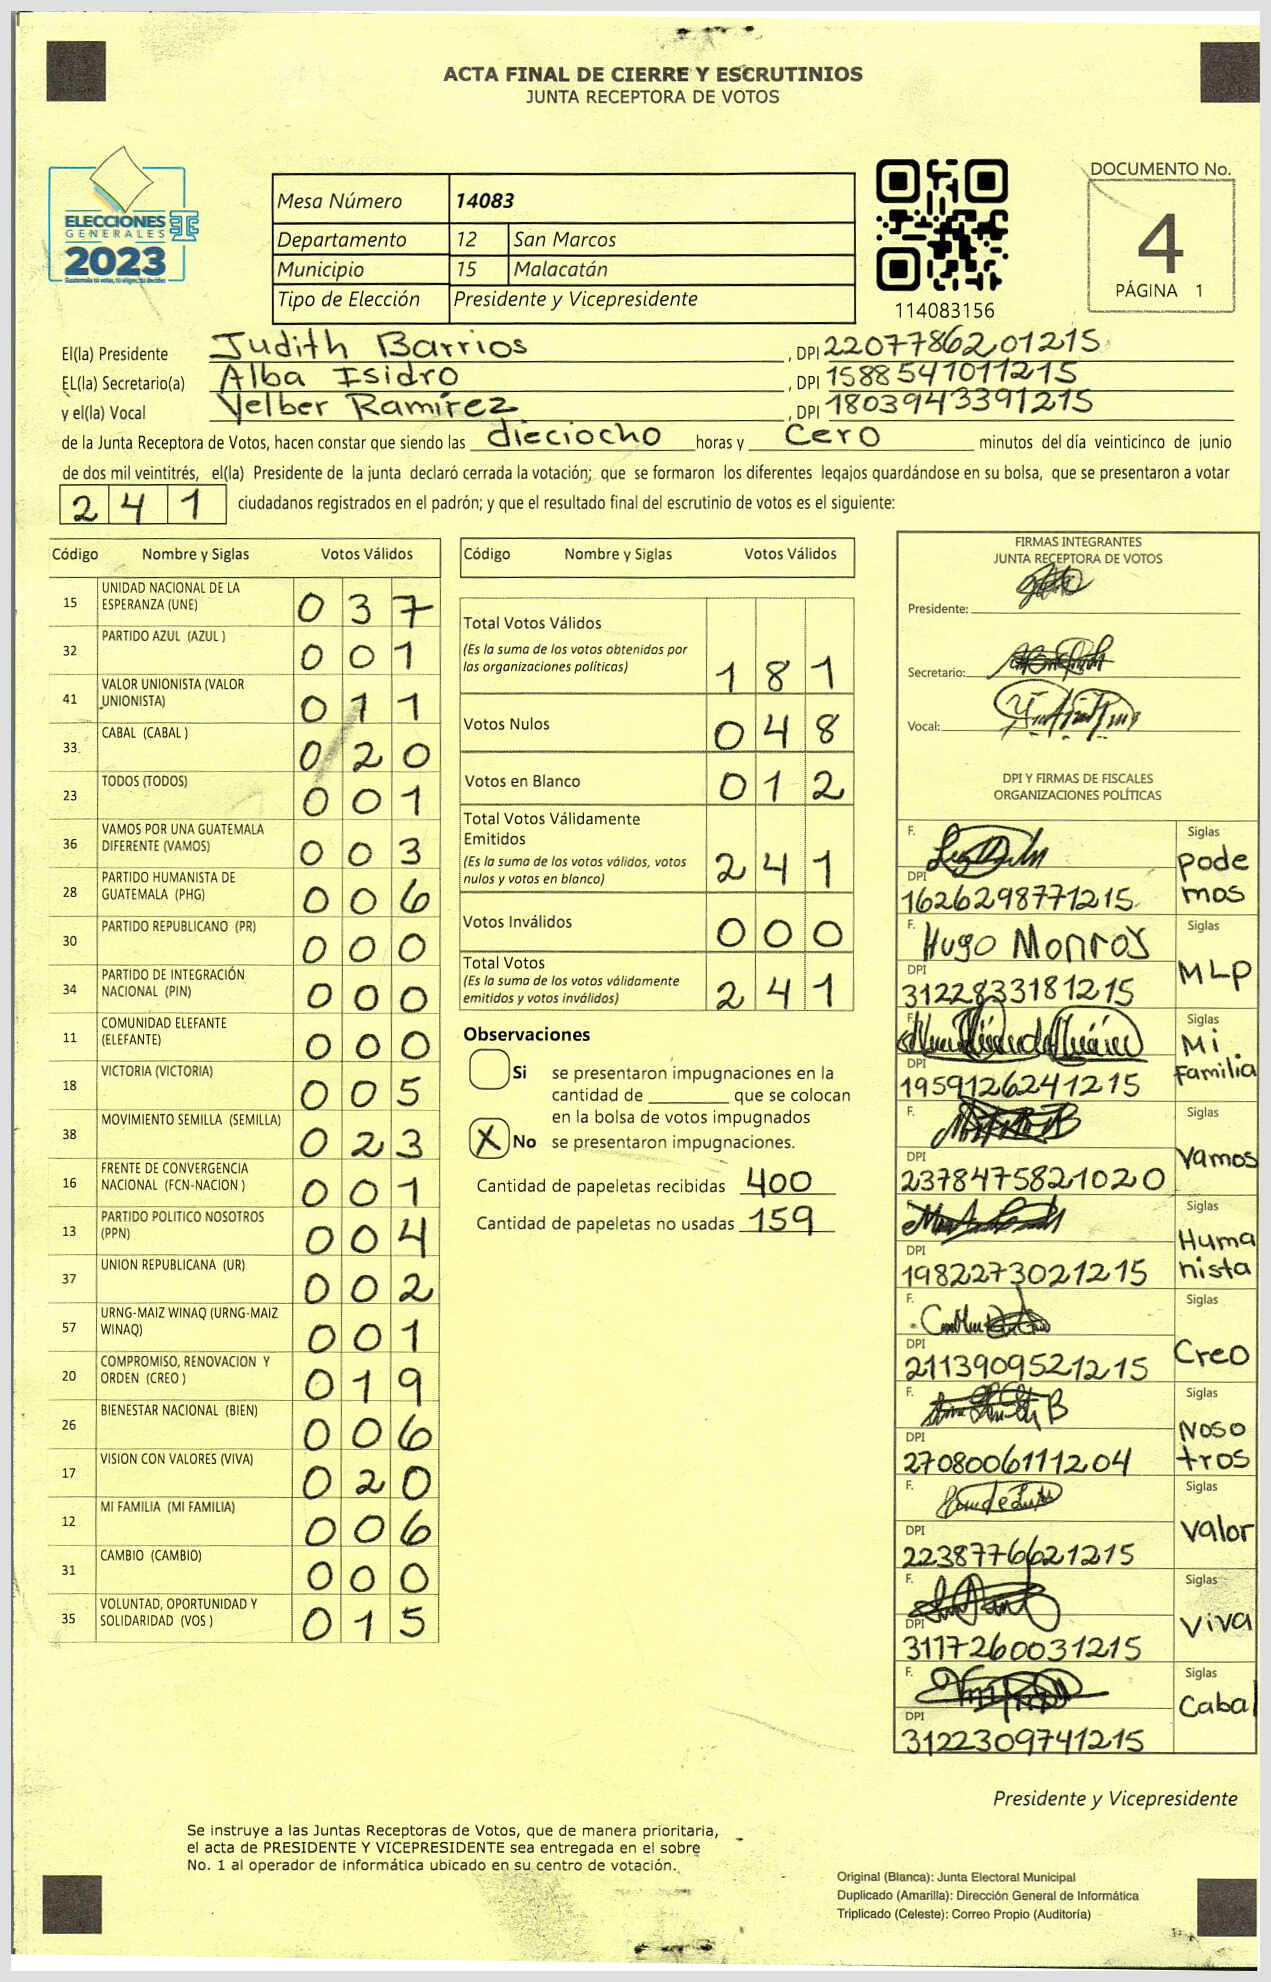 ACTA FINAL DE CIERRE Y ESCRUTINIOS
JUNTA RECEPTORA DE VOTOS
ELECCIONES
GENERALES
2023
Mesa Número 14083
Departamento 12 San Marcos
Municipio 15 Malacatán
Tipo de Elección Presidente y Vicepresidente
114083156
DOCUMENTO No.
4
PÁGINA 1
El(la) Presidente Judith Barrios , DPI 2207786201215
EL(la) Secretario(a) Alba Isidro , DPI 1588541011215
y el(la) Vocal Yelber Ramírez , DPI 1803943391215
de la Junta Receptora de Votos, hacen constar que siendo las dieciocho horas y cero minutos del día veinticinco de junio
de dos mil veintitrés, el(la) Presidente de la junta declaró cerrada la votación; que se formaron los diferentes legajos guardándose en su bolsa, que se presentaron a votar
241 ciudadanos registrados en el padrón; y que el resultado final del escrutinio de votos es el siguiente:
Código Nombre y Siglas Votos Válidos
15 UNIDAD NACIONAL DE LA ESPERANZA (UNE) 037
32 PARTIDO AZUL (AZUL ) 001
41 VALOR UNIONISTA (VALOR UNIONISTA) 011
33 CABAL (CABAL ) 020
23 TODOS (TODOS) 001
36 VAMOS POR UNA GUATEMALA DIFERENTE (VAMOS) 003
28 PARTIDO HUMANISTA DE GUATEMALA (PHG) 006
30 PARTIDO REPUBLICANO (PR) 000
34 PARTIDO DE INTEGRACIÓN NACIONAL (PIN) 000
11 COMUNIDAD ELEFANTE (ELEFANTE) 000
18 VICTORIA (VICTORIA) 005
38 MOVIMIENTO SEMILLA (SEMILLA) 023
16 FRENTE DE CONVERGENCIA NACIONAL (FCN-NACION ) 001
13 PARTIDO POLITICO NOSOTROS (PPN) 004
37 UNION REPUBLICANA (UR) 002
57 URNG-MAIZ WINAQ (URNG-MAIZ WINAQ) 001
20 COMPROMISO, RENOVACION Y ORDEN (CREO ) 019
26 BIENESTAR NACIONAL (BIEN) 006
17 VISION CON VALORES (VIVA) 020
12 MI FAMILIA (MI FAMILIA) 006
31 CAMBIO (CAMBIO) 000
35 VOLUNTAD, OPORTUNIDAD Y SOLIDARIDAD (VOS ) 015
Código Nombre y Siglas Votos Válidos
Total Votos Válidos
(Es la suma de los votos obtenidos por
las organizaciones políticas) 181
Votos Nulos 048
Votos en Blanco 012
Total Votos Válidamente
Emitidos
(Es la suma de los votos válidos, votos
nulos y votos en blanco) 241
Votos Inválidos 000
Total Votos
(Es la suma de los votos válidamente
emitidos y votos inválidos) 241
Observaciones
Si se presentaron impugnaciones en la
cantidad de ________ que se colocan
en la bolsa de votos impugnados
X No se presentaron impugnaciones.
Cantidad de papeletas recibidas 400
Cantidad de papeletas no usadas 159
FIRMAS INTEGRANTES
JUNTA RECEPTORA DE VOTOS
Presidente:
Secretario:
Vocal:
DPI Y FIRMAS DE FISCALES
ORGANIZACIONES POLÍTICAS
F. Siglas
Podemos
DPI
1626298771215
F. Hugo Monroy Siglas
MLP
DPI
3122833181215
F. Siglas
Mi Familia
DPI
1959126241215
F. Siglas
Vamos
DPI
2378475821020
F. Siglas
Humanista
DPI
1982273021215
F. Siglas
Creo
DPI
2113909521215
F. Siglas
Nosotros
DPI
2708006111204
F. Siglas
Valor
DPI
2238776621215
F. Siglas
Viva
DPI
3117260031215
F. Siglas
Cabal
DPI
3122309741215
Presidente y Vicepresidente
Se instruye a las Juntas Receptoras de Votos, que de manera prioritaria,
el acta de PRESIDENTE Y VICEPRESIDENTE sea entregada en el sobre
No. 1 al operador de informática ubicado en su centro de votación.
Original (Blanca): Junta Electoral Municipal
Duplicado (Amarilla): Dirección General de Informática
Triplicado (Celeste): Correo Propio (Auditoría)